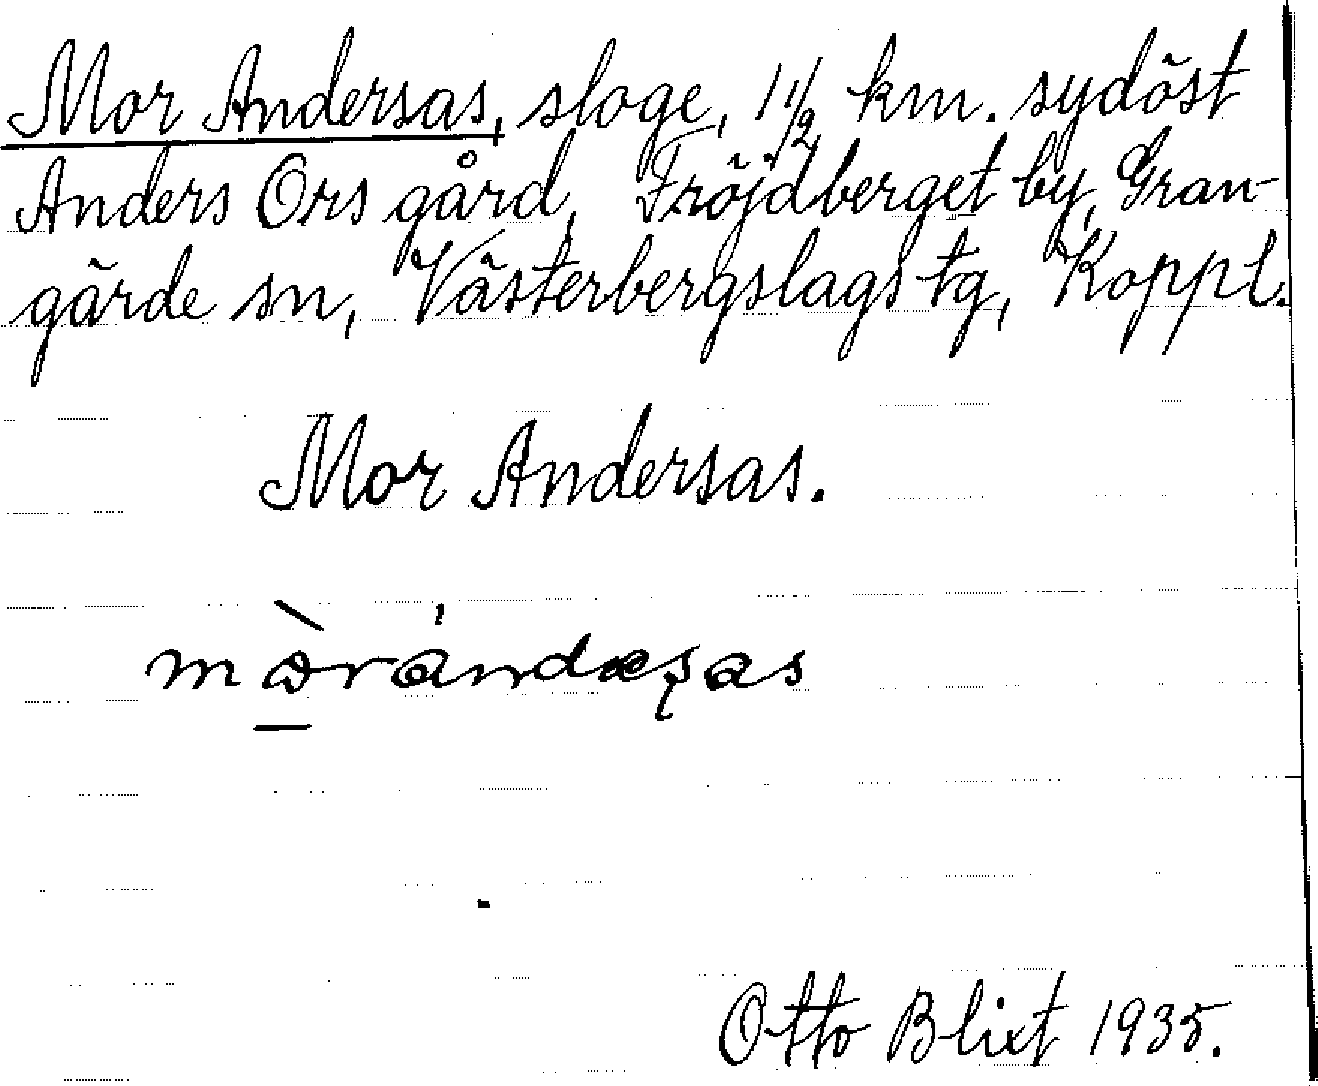 Mor Andersas, sloge, 1 1/2 km. sydöst
Anders Ors gård, Fröjdberget by, Gran-
gärde sn, Västerbergslags tg, Koppl.
Mor Andersas.
mɷ̀rándæșas
Otto Blixt 1935.